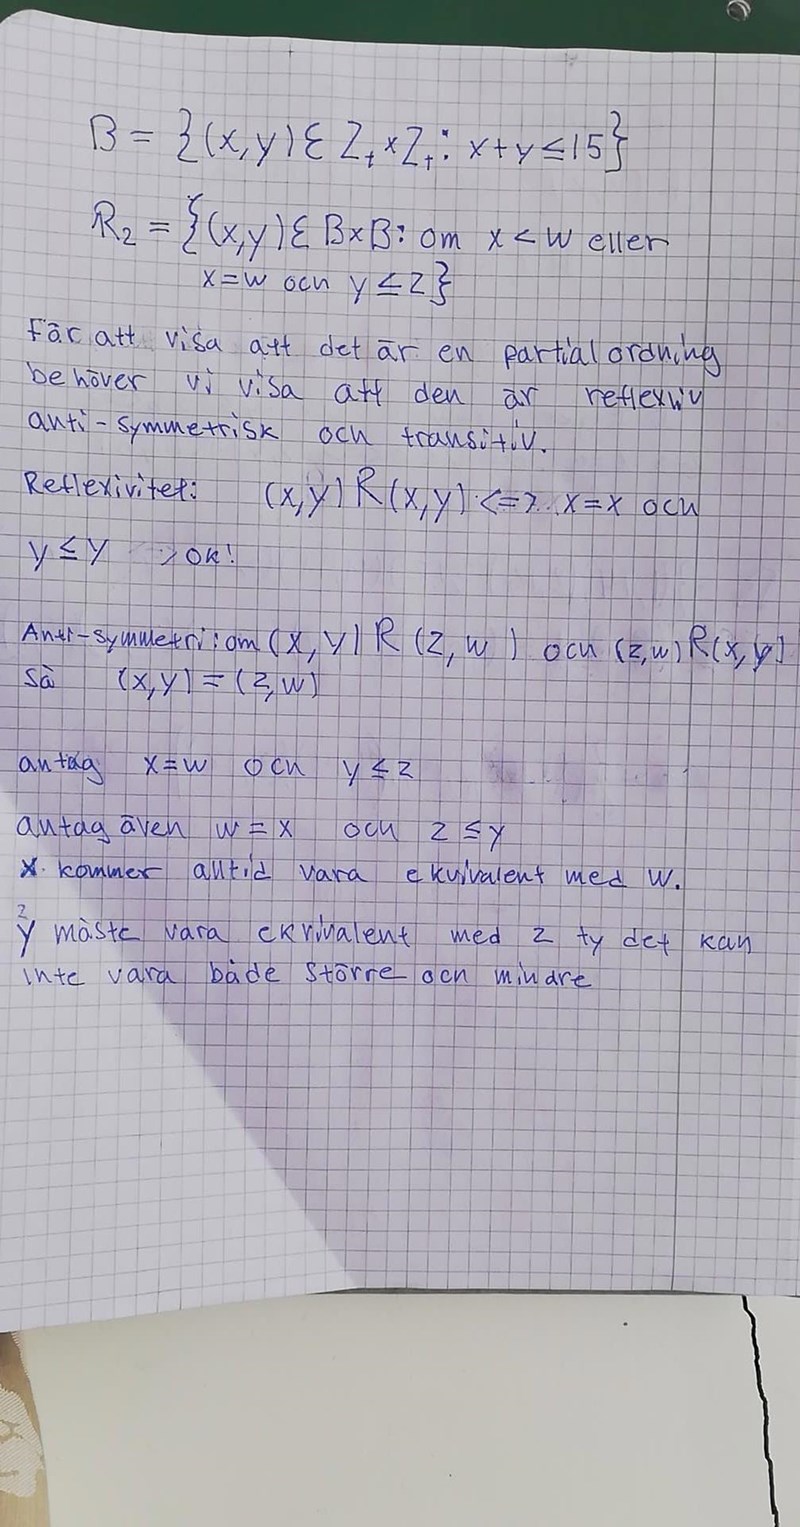 B = {(x,y) ∈ Z₊×Z₊: x+y≤15}
R₂ = {(x,y) ∈ B×B: om x < w eller
x=w och y ≤ z}
För att visa att det är en partialordning
behöver vi visa att den är reflexiv
anti-symmetrisk och transitiv.
Reflexivitet: (x,y) R (x,y) <=> x=x och
y ≤ y > ok!
Anti-symmetri: om (x,y) R (z,w) och (z,w) R (x,y)
så (x,y) = (z,w)
antag x=w och y ≤ z
antag även w = x och z ≤ y
x kommer alltid vara ekvivalent med w.
y måste vara ekvivalent med z ty det kan
inte vara både större och mindre